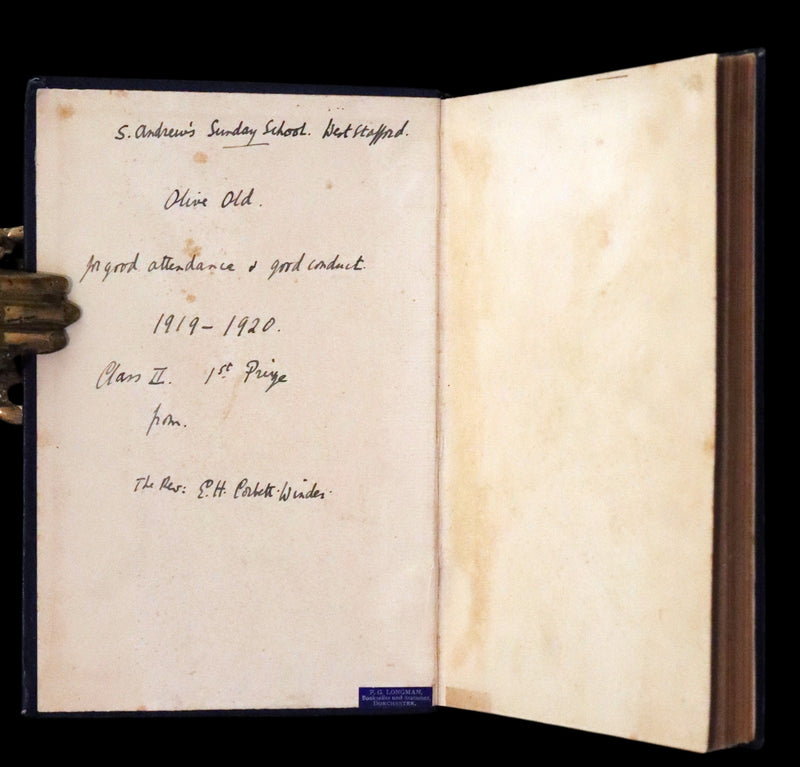 S. Andrew's Sunday School. West Stafford.
Olive Old.
for good attendance & good conduct.
1919 – 1920.
Class II. 1st Prize
from.
The Rev: E. H. Corbett-Winder.
F. G. LONGMAN,
Bookseller and Stationer,
DORCHESTER.